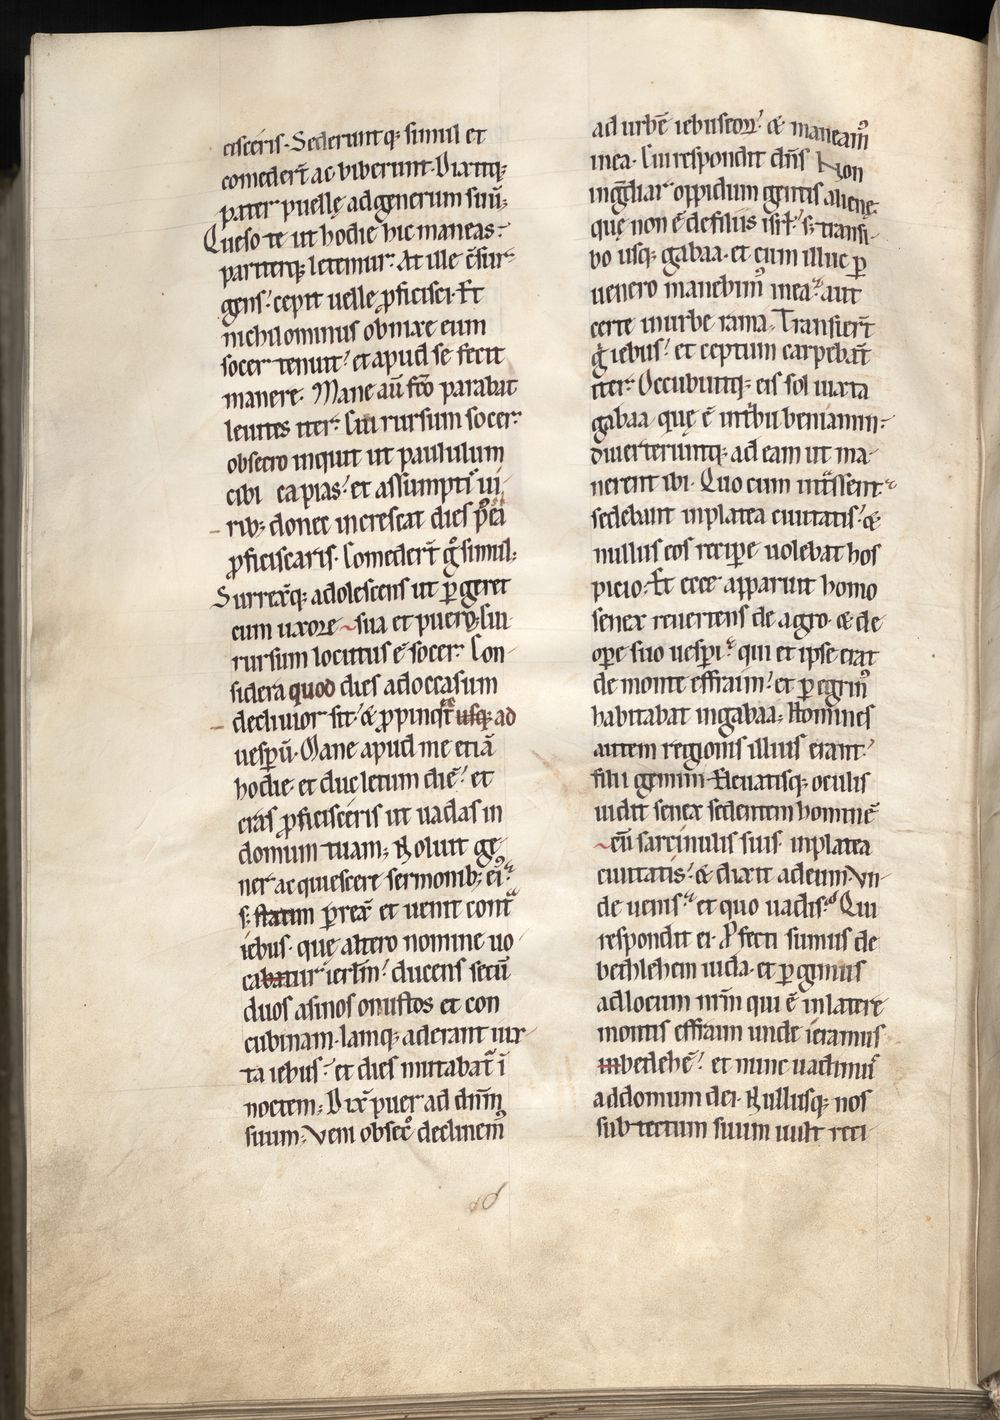 ciscéris. Sederuntq; simul et
comeder̄t ac biberunt. Dixitq;
pater puellę ad generum suū;
Queso te ut hodie hic maneas:
pariterq; letemur. At ille c̄sur
gens: cepit uelle ꝓficisci. Et
nichilominus obnixe eum
socer tenuit: et apud se fecit
manere. Mane aū fc̄o parabat
leuites iter. Cui rursum socer.
obsecro inquit ut paululum
cibi capias: et assumptis ui
rib; donec increscat dies postea
ꝓficiscaris. Comeder̄t gͦ simul;
Surrexitq; adolescens ut ꝑgeret
cum uxore sua et puero; Cui
rursum locutus ē socer. Con
sidera quod dies ad occasum
decliuior sit: & ꝓpinqͣt usq; ad
uesꝑū. Mane apud me etiā
hodie. et duc letum diē: et
cras ꝓficiscéris ut uadas in
domum tuam; Noluit ge
ner acquiescere sermonib; ei᷒:
s; statim ꝑrex̄ et uenit contͣ
iebus. quę altero nomine uo
cabatur ierlm̄: ducens secū
duos asinos onustos et con
cubinam. Iamq; aderant iux
ta iebus: et dies mutabat̄ ī
noctem; Dix̄ puer ad dn̄m
suum; Veni obsecͦ declinem᷒
ad urbē iebuseoꝝ. & maneam᷒
in ea. Cui respondit dn̄s Non
ingͤdiar oppidum gentis alienę
quę non ē de filiis isrl̄: s; transi
bo usq; gabaa. et cum illuc ꝑ
uenero manebim᷒ in ea: aut
certe in urbe rama; Transier̄t
gͦ iebus: et ceptum carpebāt
iter. Occubuitq; eis sol iuxta
gabaa quę ē in tͥbu beniamin:
diuerteruntq; ad eam ut ma
nerent ibi. Quo cum intͣssent:
sedebant in platea ciuitatis: &
nullus eos reciꝑe uolebat hos
picio. Et ecce apparuit homo
senex reuertens de agro. & de
oꝑe suo uesꝑi: qui et ipse erat
de monte effraim: et ꝑegrin᷒
habitabat in gabaa; Homines
autem regionis illius erant
filii gemini. Eleuatisq; oculis
uidit senex sedentem hominē
cū sarcinulis suis in platea
ciuitatis: & dixit ad eum Vn
de uenis: et quo uadis: Qui
respondit ei. Ꝓfecti sumus de
bethlehem iuda. et ꝑgimus
ad locum nr̄m qui ē in latere
montis effraim unde ieramus
in bedehē: et nunc uadim᷒
ad domum dei. Nullusq; nos
sub tectum suum uult reci